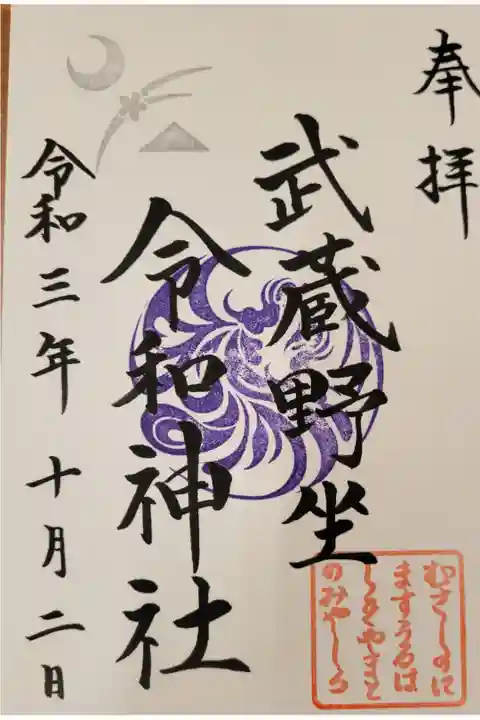 奉拝
武蔵野坐
令和神社
令和三年 十月二日
むさしのに
ますうるは
しきやまと
のみやしろ